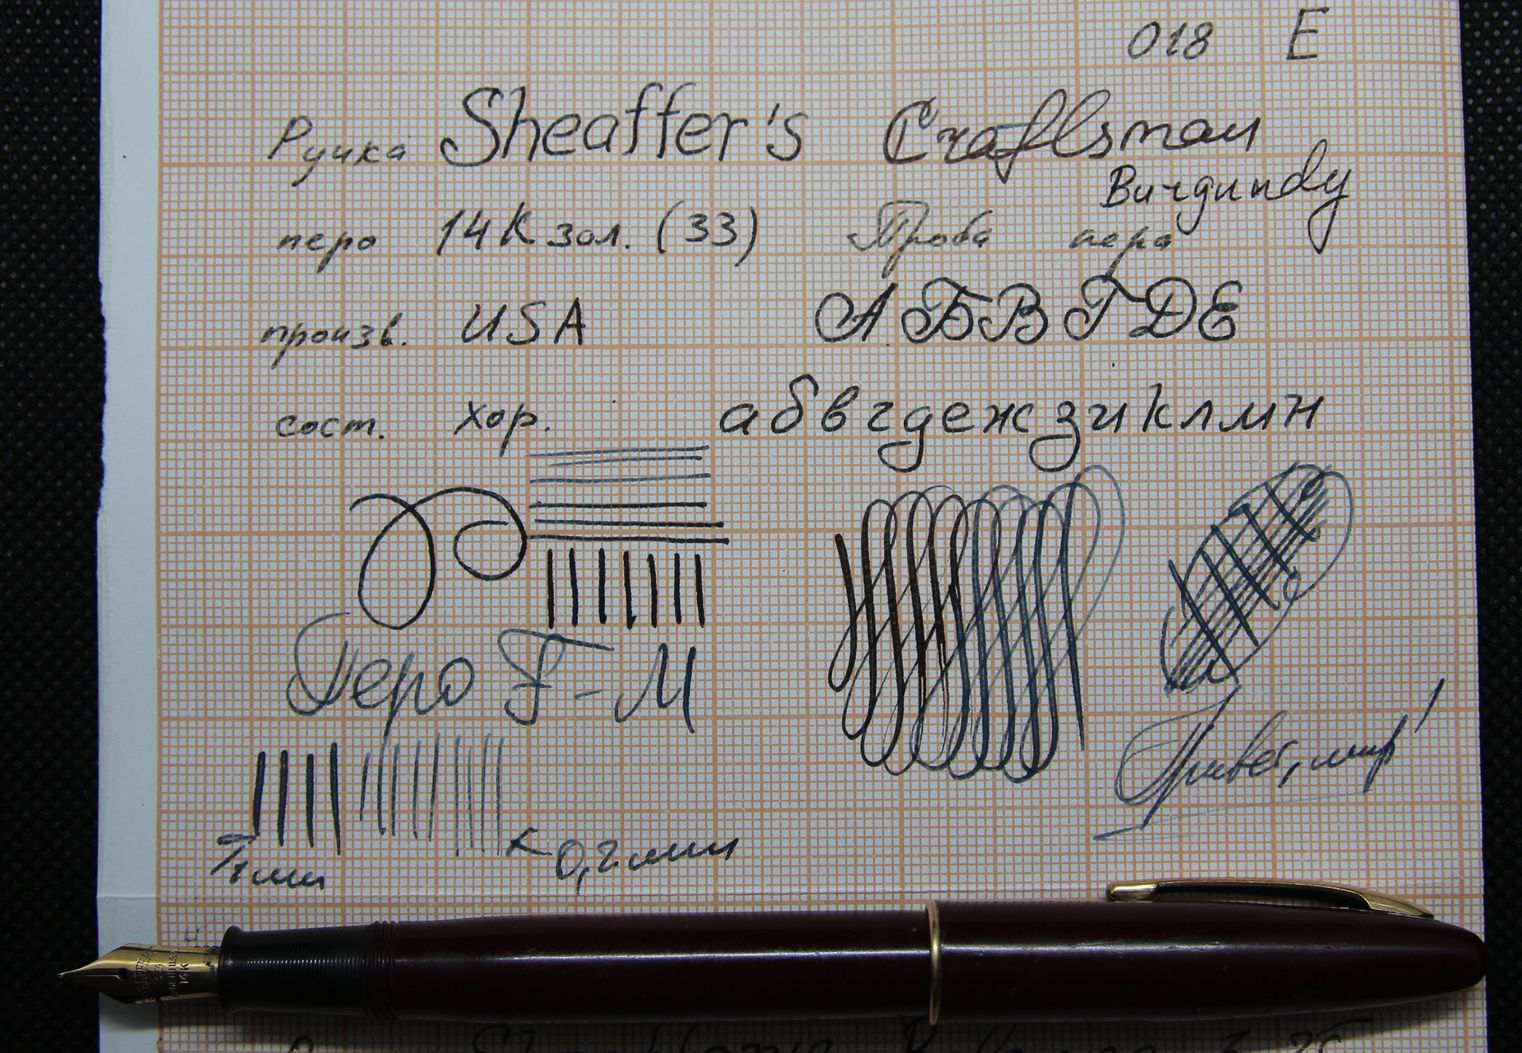 018 E
Ручка Sheaffer's Craftsman
Burgundy
перо 14К зол. (33) Проба пера
произв. USA АБВГДЕ
сост. хор. абвгдежзиклмн
Перо F-M
Привет, мир!
1 мм 0,2 мм
14K